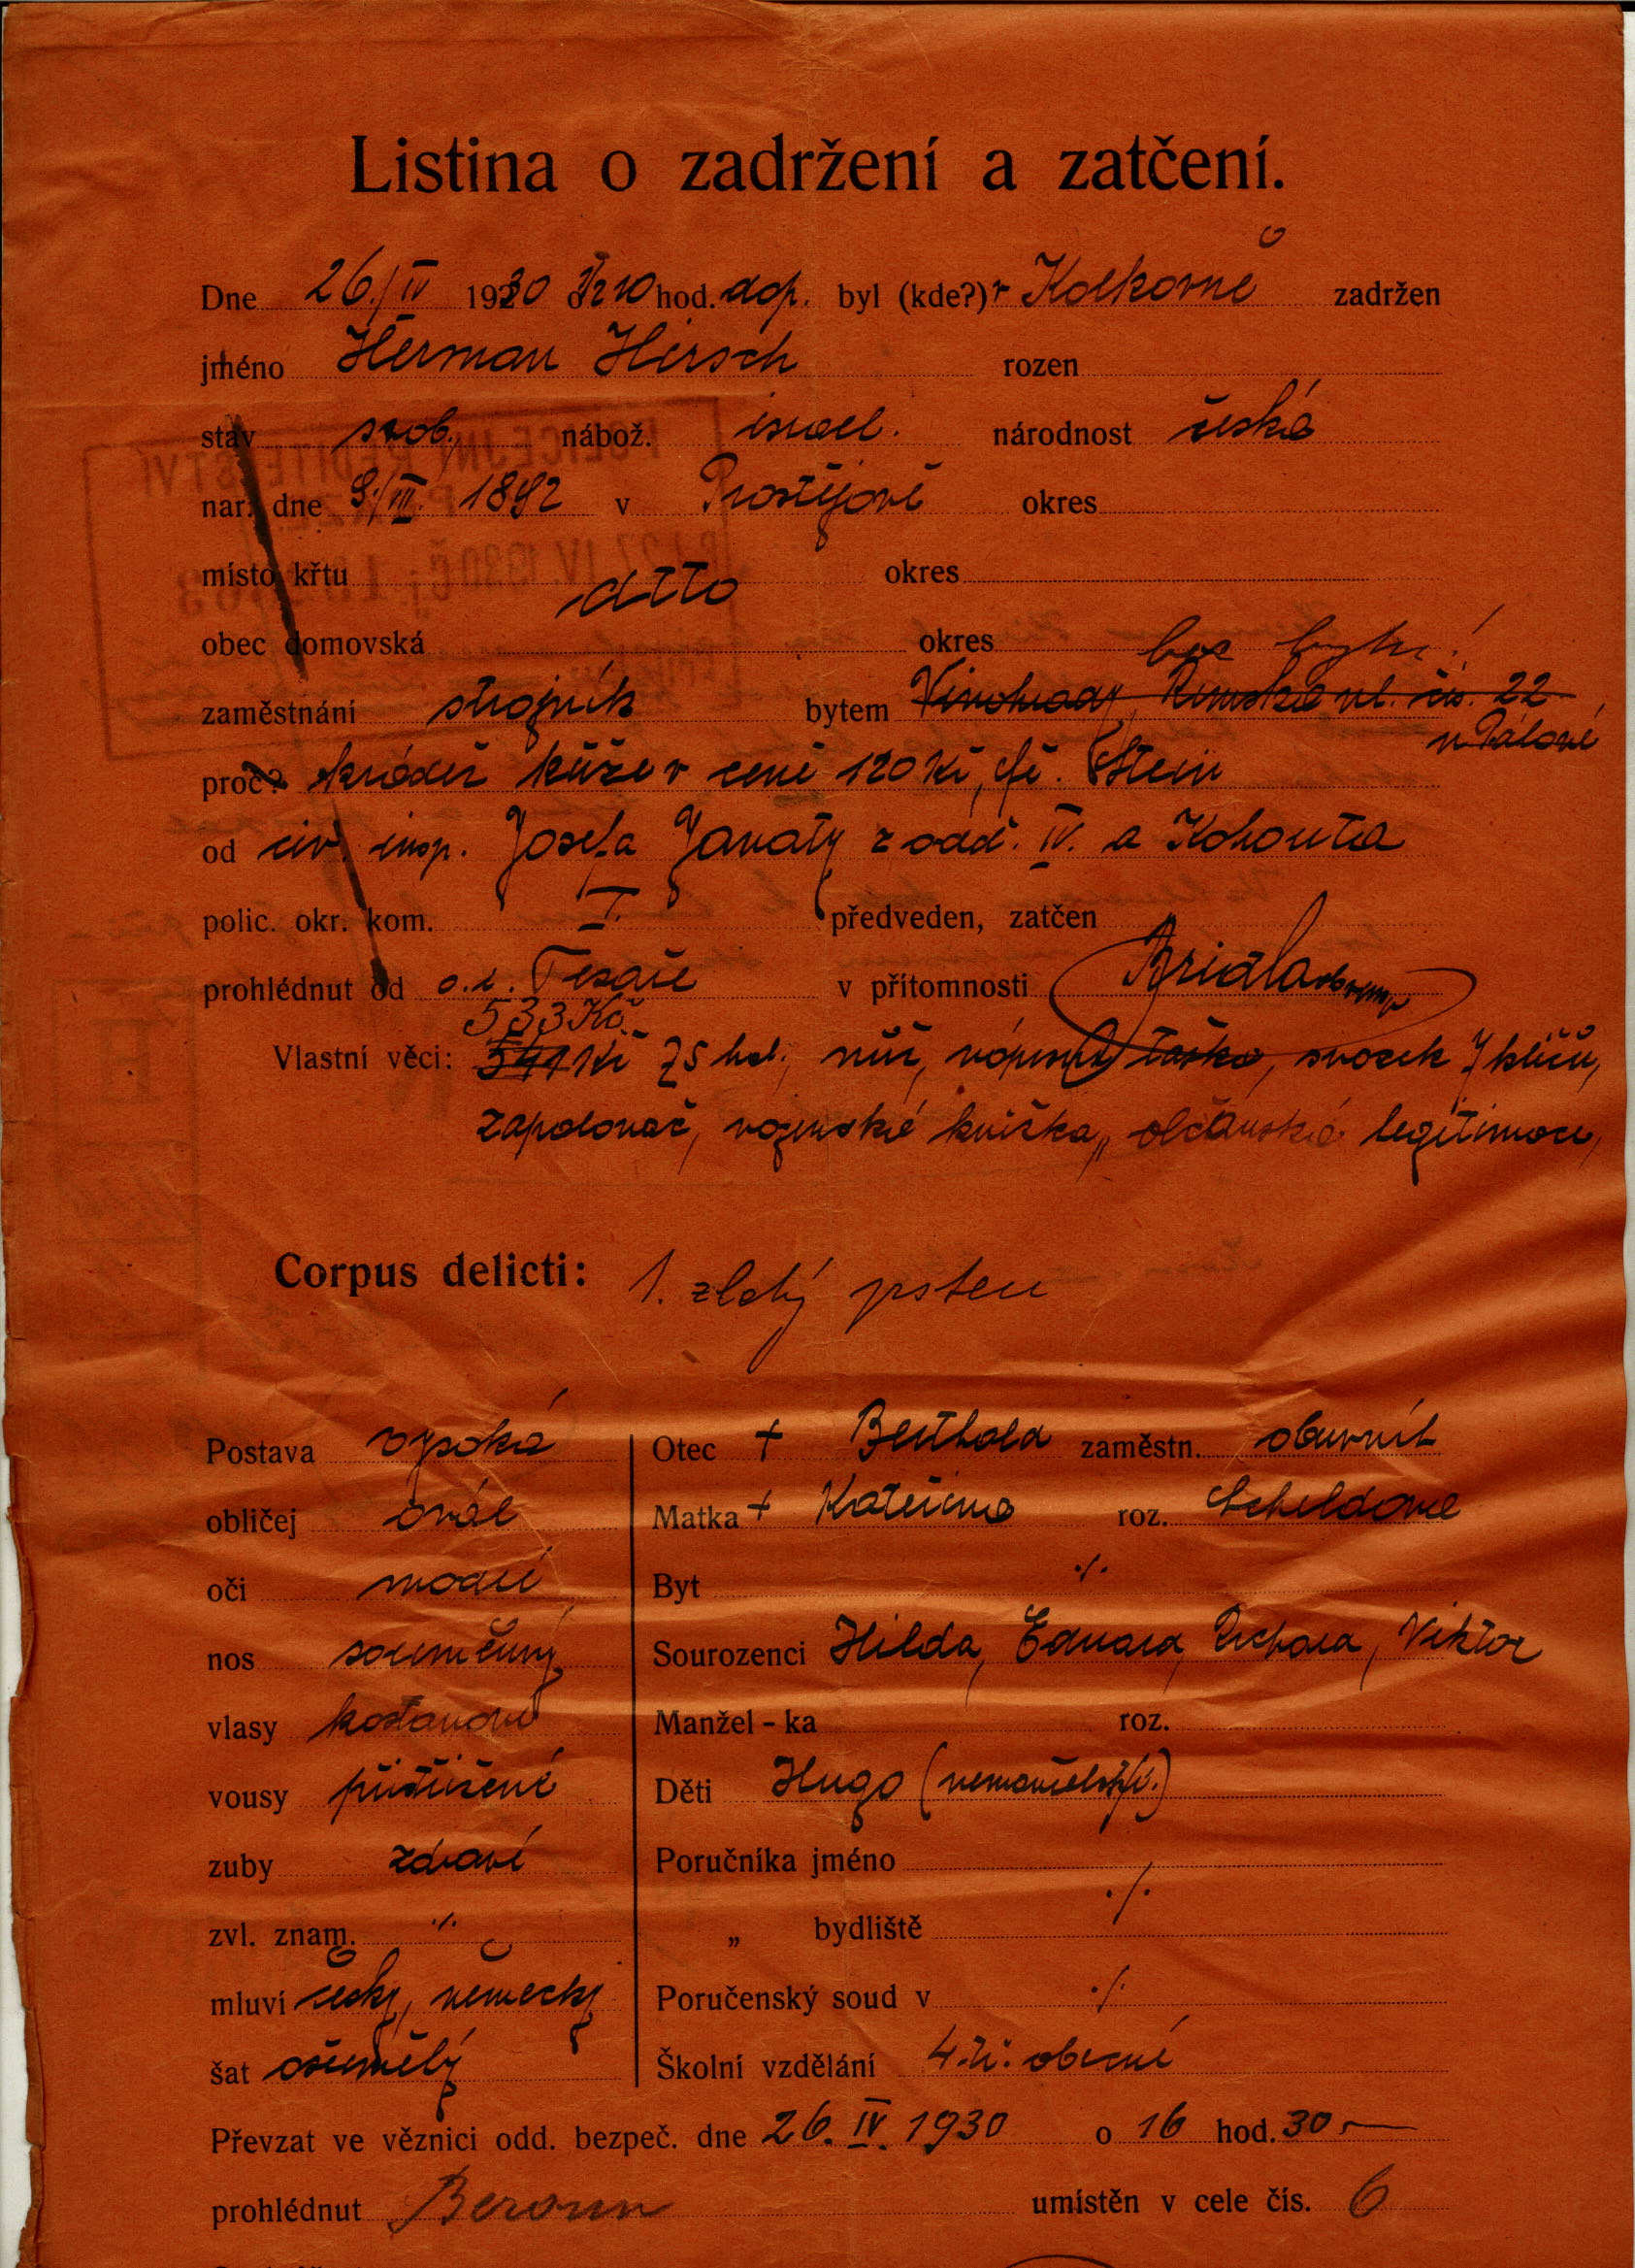 Listina o zadržení a zatčení.
Dne 26./IV 1930 o 1/2 10 hod. dop. byl (kde?) v Kolkovně zadržen
jméno Herman Hirsch rozen
stav svob. nábož. israel. národnost česká
nar. dne 9./III. 1892 v Prostějově okres
místo křtu okres
dtto
obec domovská okres bez bytu!
zaměstnání strojník bytem Vinohrady, Římská ul. čís. 22
proč? krádež kůže v ceně 120 Kč, fě. Stein
od civ. insp. Josefa Janaty z odd. IV. a Kohouta
polic. okr. kom. I. předveden, zatčen
prohlédnut od o.i. Tesaře v přítomnosti
533 Kč
Vlastní věci: 541 Kč 75 hal., nůž, nápisní taška, svazek 7 klíčů,
zapalovač, vojenská knížka, občanská legitimace,
Corpus delicti: 1. zlatý prsten
Postava vysoká Otec + Berthold zaměstn. obuvník
obličej ovál Matka + Kateřina roz. Scheldova
oči modré Byt ·/·
nos souměrný Sourozenci Hilda, Eduard, Richard, Viktor
vlasy kaštanové Manžel - ka roz.
vousy přistřižené Děti Hugo (nemanželský.)
zuby zdravé Poručníka jméno
·/·
zvl. znam. ·/· „ bydliště
mluví česky, německy Poručenský soud v ·/·
šat ošumělý Školní vzdělání 4. tř. obecné
Převzat ve věznici odd. bezpeč. dne 26. IV. 1930 o 16 hod. 30
prohlédnut Beroun umístěn v cele čís. 6